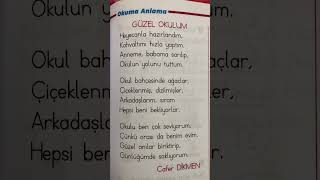 Okuma Anlama
GÜZEL OKULUM
Heyecanla hazırlandım,
Kahvaltımı hızla yaptım.
Anneme, babama sarılıp,
Okulun yolunu tuttum.
Okul bahçesinde ağaçlar,
Çiçeklenmiş, dizilmişler.
Arkadaşlarım, sıram
Hepsi beni bekliyorlar.
Okulu ben çok seviyorum,
Çünkü orası da benim evim.
Güzel anılar biriktirip,
Günlüğümde saklıyorum.
Cafer DİKMEN